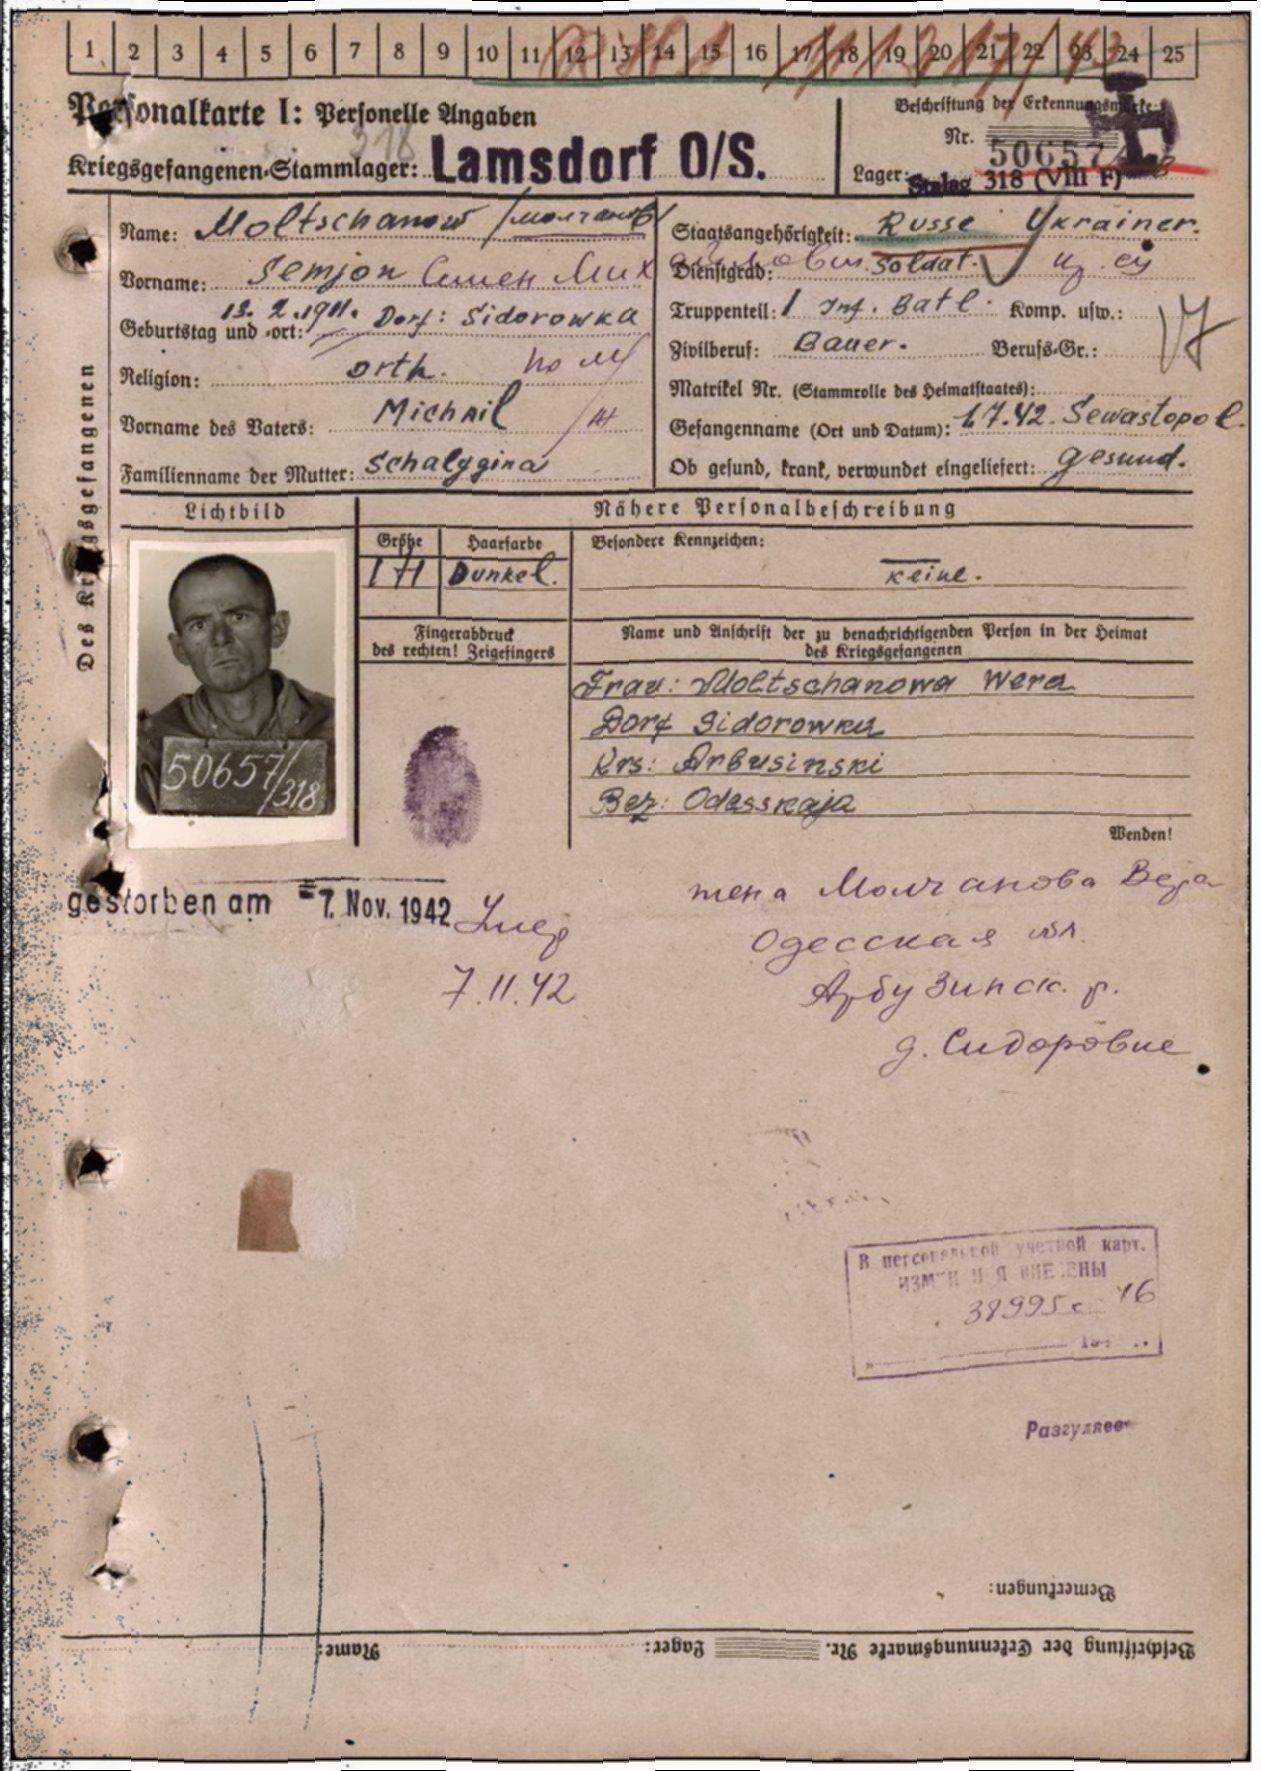 1 2 3 4 5 6 7 8 9 10 11 12 13 14 15 16 17 18 19 20 21 22 23 24 25
Personalkarte I: Personelle Angaben
Kriegsgefangenen-Stammlager: Lamsdorf O/S.
318
Beschriftung der Erkennungsmarke:
Nr. 50657
Lager: Stalag 318 (VIII F)
Des Kriegsgefangenen
Name: Moltschanow /Молчанов/
Vorname: Semjon Семен Михайлович
Geburtstag und -ort: 13. 2. 1911. Dorf: Sidorowka
Religion: orth.
Vorname des Vaters: Michail
Familienname der Mutter: Schalygina
Staatsangehörigkeit: Russe Ukrainer.
Dienstgrad: Soldat.
Truppenteil: 1 Inf. Batl. Komp. usw.:
Zivilberuf: Bauer. Berufs-Gr.:
Matrikel Nr. (Stammrolle des Heimatstaates):
Gefangenname (Ort und Datum): 1.7.42. Sewastopol.
Ob gesund, krank, verwundet eingeliefert: gesund.
Lichtbild
50657/318
Nähere Personalbeschreibung
Größe Haarfarbe Besondere Kennzeichen:
171 Dunkel. keine.
Fingerabdruck
des rechten! Zeigefingers
Name und Anschrift der zu benachrichtigenden Person in der Heimat
des Kriegsgefangenen
Frau: Moltschanowa Wera
Dorf Sidorowka
Krs: Arbusinski
Bez: Odesskaja
Wenden!
gestorben am 7. Nov. 1942
7.11.42
жена Молчанова Вера
Одесская обл.
Арбузинск. р.
д. Сидоровке
В персональной учетной карт.
ИЗМЕНЕНИЯ ВНЕСЕНЫ
38995с 46
Разгуляев
Bemerkungen:
Name: Lager: Beschriftung der Erkennungsmarke Nr.